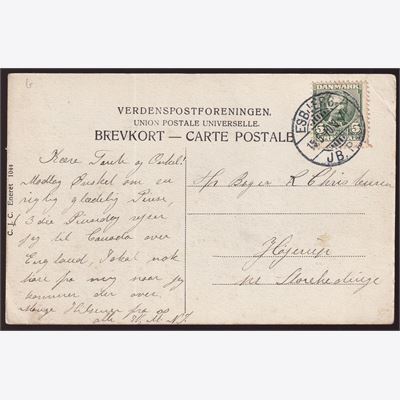 VERDENSPOSTFORENINGEN.
UNION POSTALE UNIVERSELLE.
BREVKORT — CARTE POSTALE
DANMARK
5
ESBJERG
JB.
C. J. C. Eneret 1044
Kære Tante og Onkel!
Modtag Ønsket om en
rigtig glædelig Pinse,
3die Pinsedag rejser
jeg til Canada over
England, I skal nok
høre fra mig naar jeg
kommer der over.
Mange Hilsener fra os
alle
Hr Bager R Christensen
Højerup
pr Storehedinge